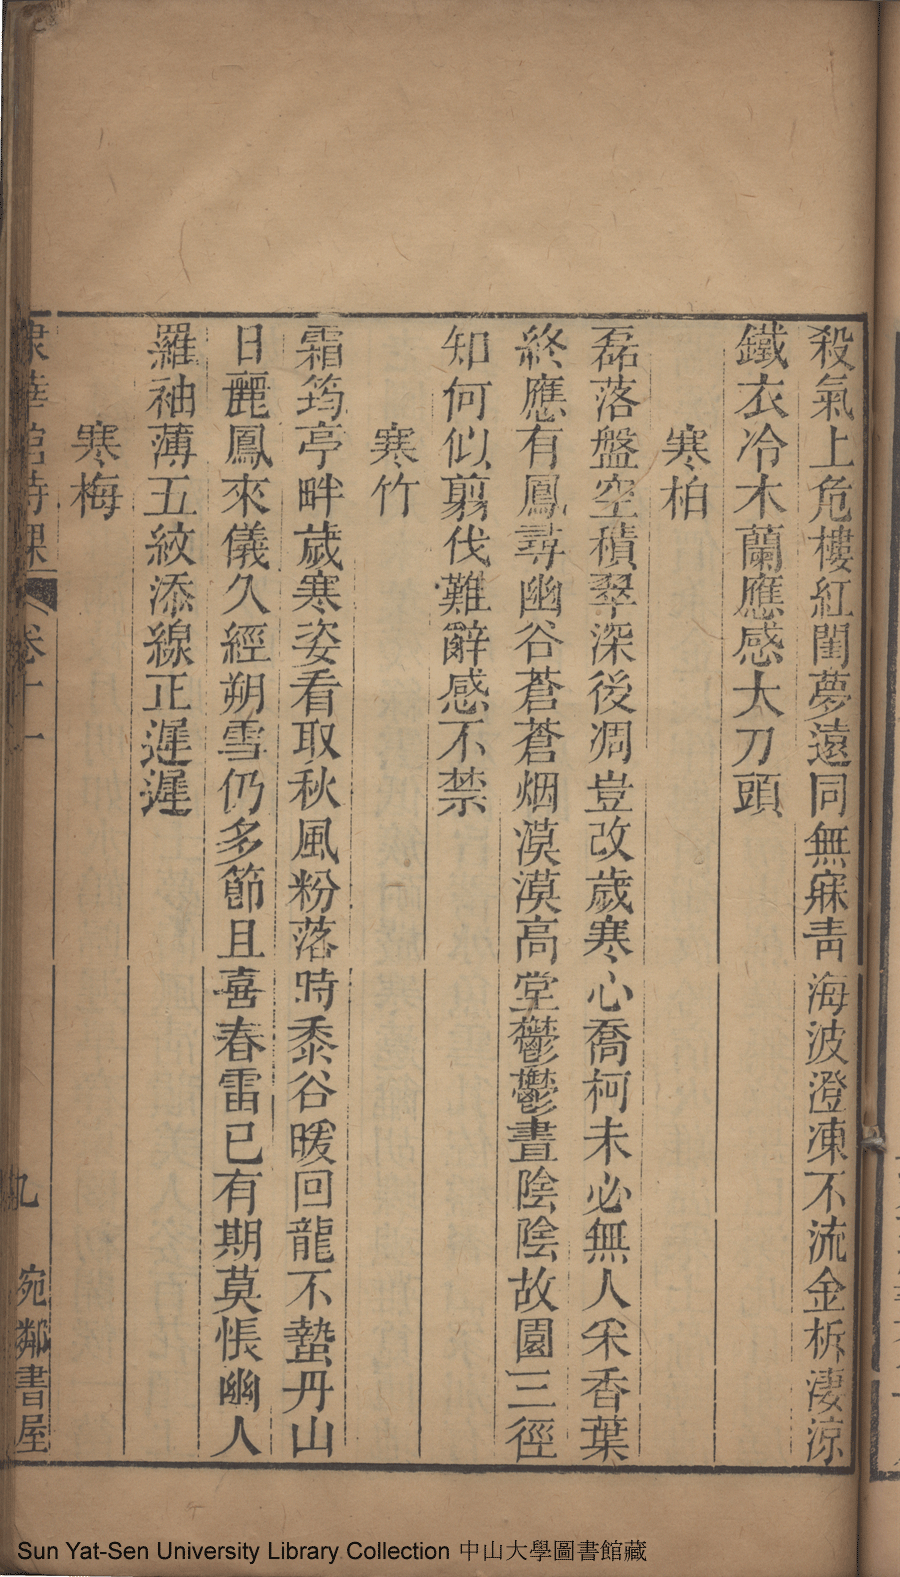 殺氣上危樓紅閨夢遠同無寐青海波澄凍不流金柝淒涼
鐵衣冷木蘭應感大刀頭
寒柏
磊落盤空積翠深後凋豈改歲寒心喬柯未必無人采香葉
終應有鳳尋幽谷蒼蒼烟漠漠高堂鬱鬱晝陰陰故園三徑
知何似翦伐難辭感不禁
寒竹
霜筠亭畔歲寒姿看取秋風粉落時黍谷暖回龍不蟄丹山
日麗鳳來儀久經朔雪仍多節且喜春雷已有期莫悵幽人
羅袖薄五紋添線正遲遲
寒梅
華館詩課
卷十一
九
宛鄰書屋
Sun Yat-Sen University Library Collection 中山大學圖書館藏